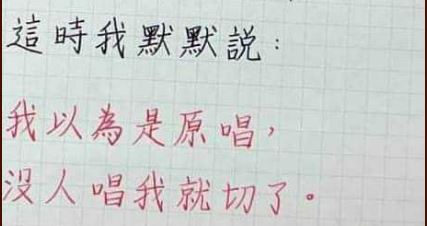 這時我默默說：
我以為是原唱，
沒人唱我就切了。